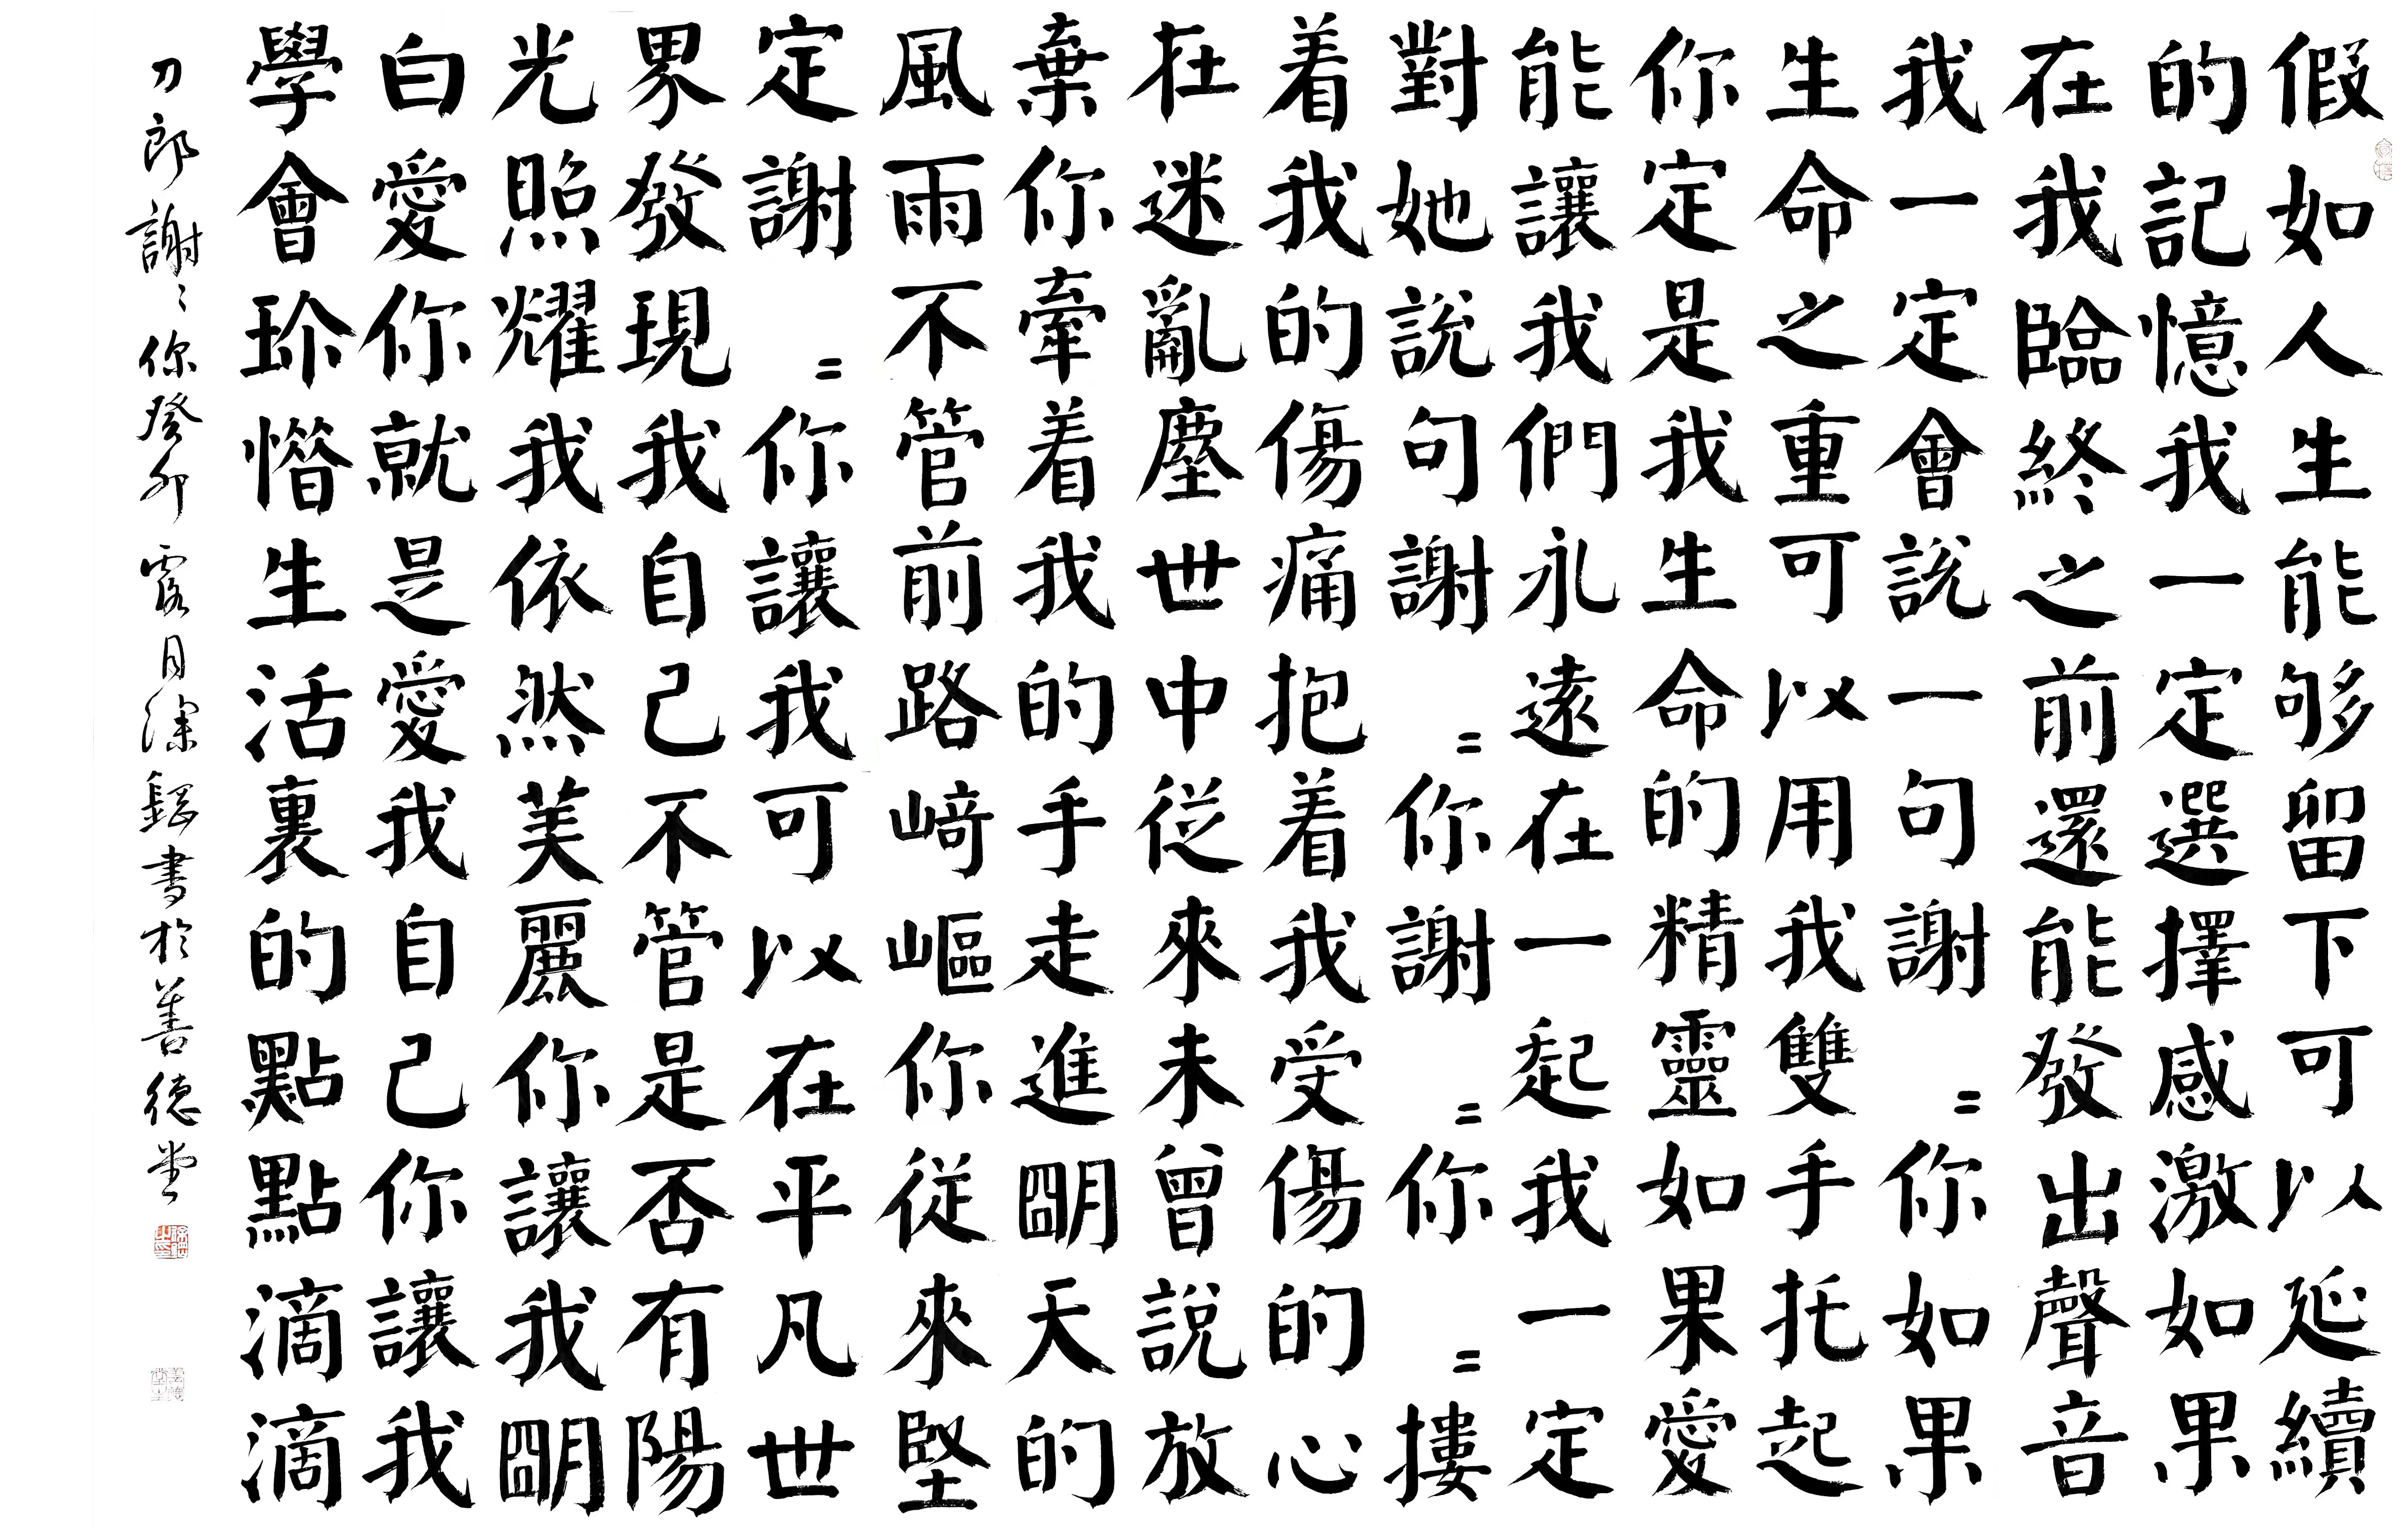 假如人生能够留下可以延續
的記憶我一定選擇感激如果
在我臨終之前還能發出聲音
我一定會説一句謝〓你如果
生命之重可以用我雙手托起
你定是我生命的精靈如果愛
能讓我們永遠在一起我一定
對她説句謝〓你謝〓你〓摟
着我的傷痛抱着我受傷的心
在迷亂塵世中從來未曾説放
棄你牽着我的手走進朙天的
風雨不管前路崎嶇你從來堅
定謝〓你讓我可以在平凡世
界發現我自己不管是否有陽
光照耀我依然美麗你讓我朙
白愛你就是愛我自己你讓我
學會珍惜生活裏的點點滴滴
刀郎謝〻你癸卯露月書於善德堂